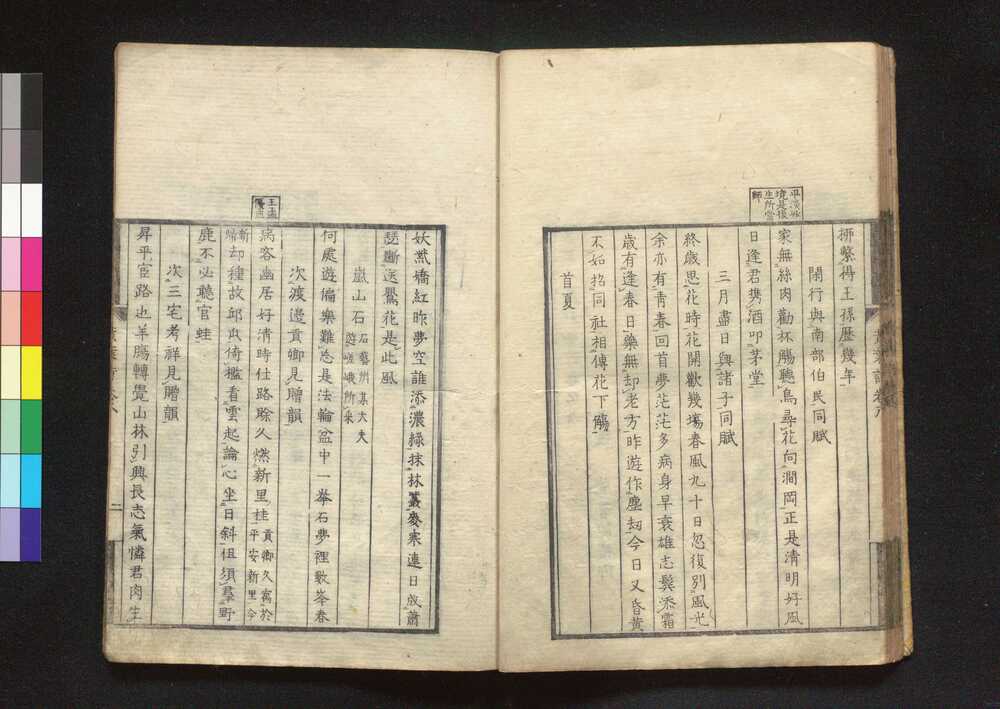 挷繫得王孫歷幾年
閒行與南部伯民同賦
家無絲肉勸杯觴聽鳥尋花向澗岡正是清明好風
日逢君携酒叩茅堂
三月盡日與諸子同賦
終歲思花時花開歡幾塲春風九十日忽復別風光
余亦有青春回首夢茫茫多病身早衰雄志鬢添霜
歲有逢春日藥無却老方昨遊作塵刼今日又昏黃
不如招同社相傳花下觴
首夏
妖黛嬌紅昨夢空誰添濃綠抹林叢麥寒連日欺蕭
瑟斷送鶯花是此風
嵐山石
石藝州某大夫
遊嵯峨所采
何處遊偏樂難忘是法輪盆中一拳石夢裡數峯春
次渡邊貢卿見贈韻
病客幽居好清時仕路賖久燃新里桂
貢卿久寓於
平安新里今
新
歸
却種故邱瓜倚檻看雲起論心坐日斜但須羣野
鹿不必聽官蛙
次三宅考祥見贈韻
昇平宦路也羊腸轉覺山林引興長志氣憐君肉生
黃葉
二